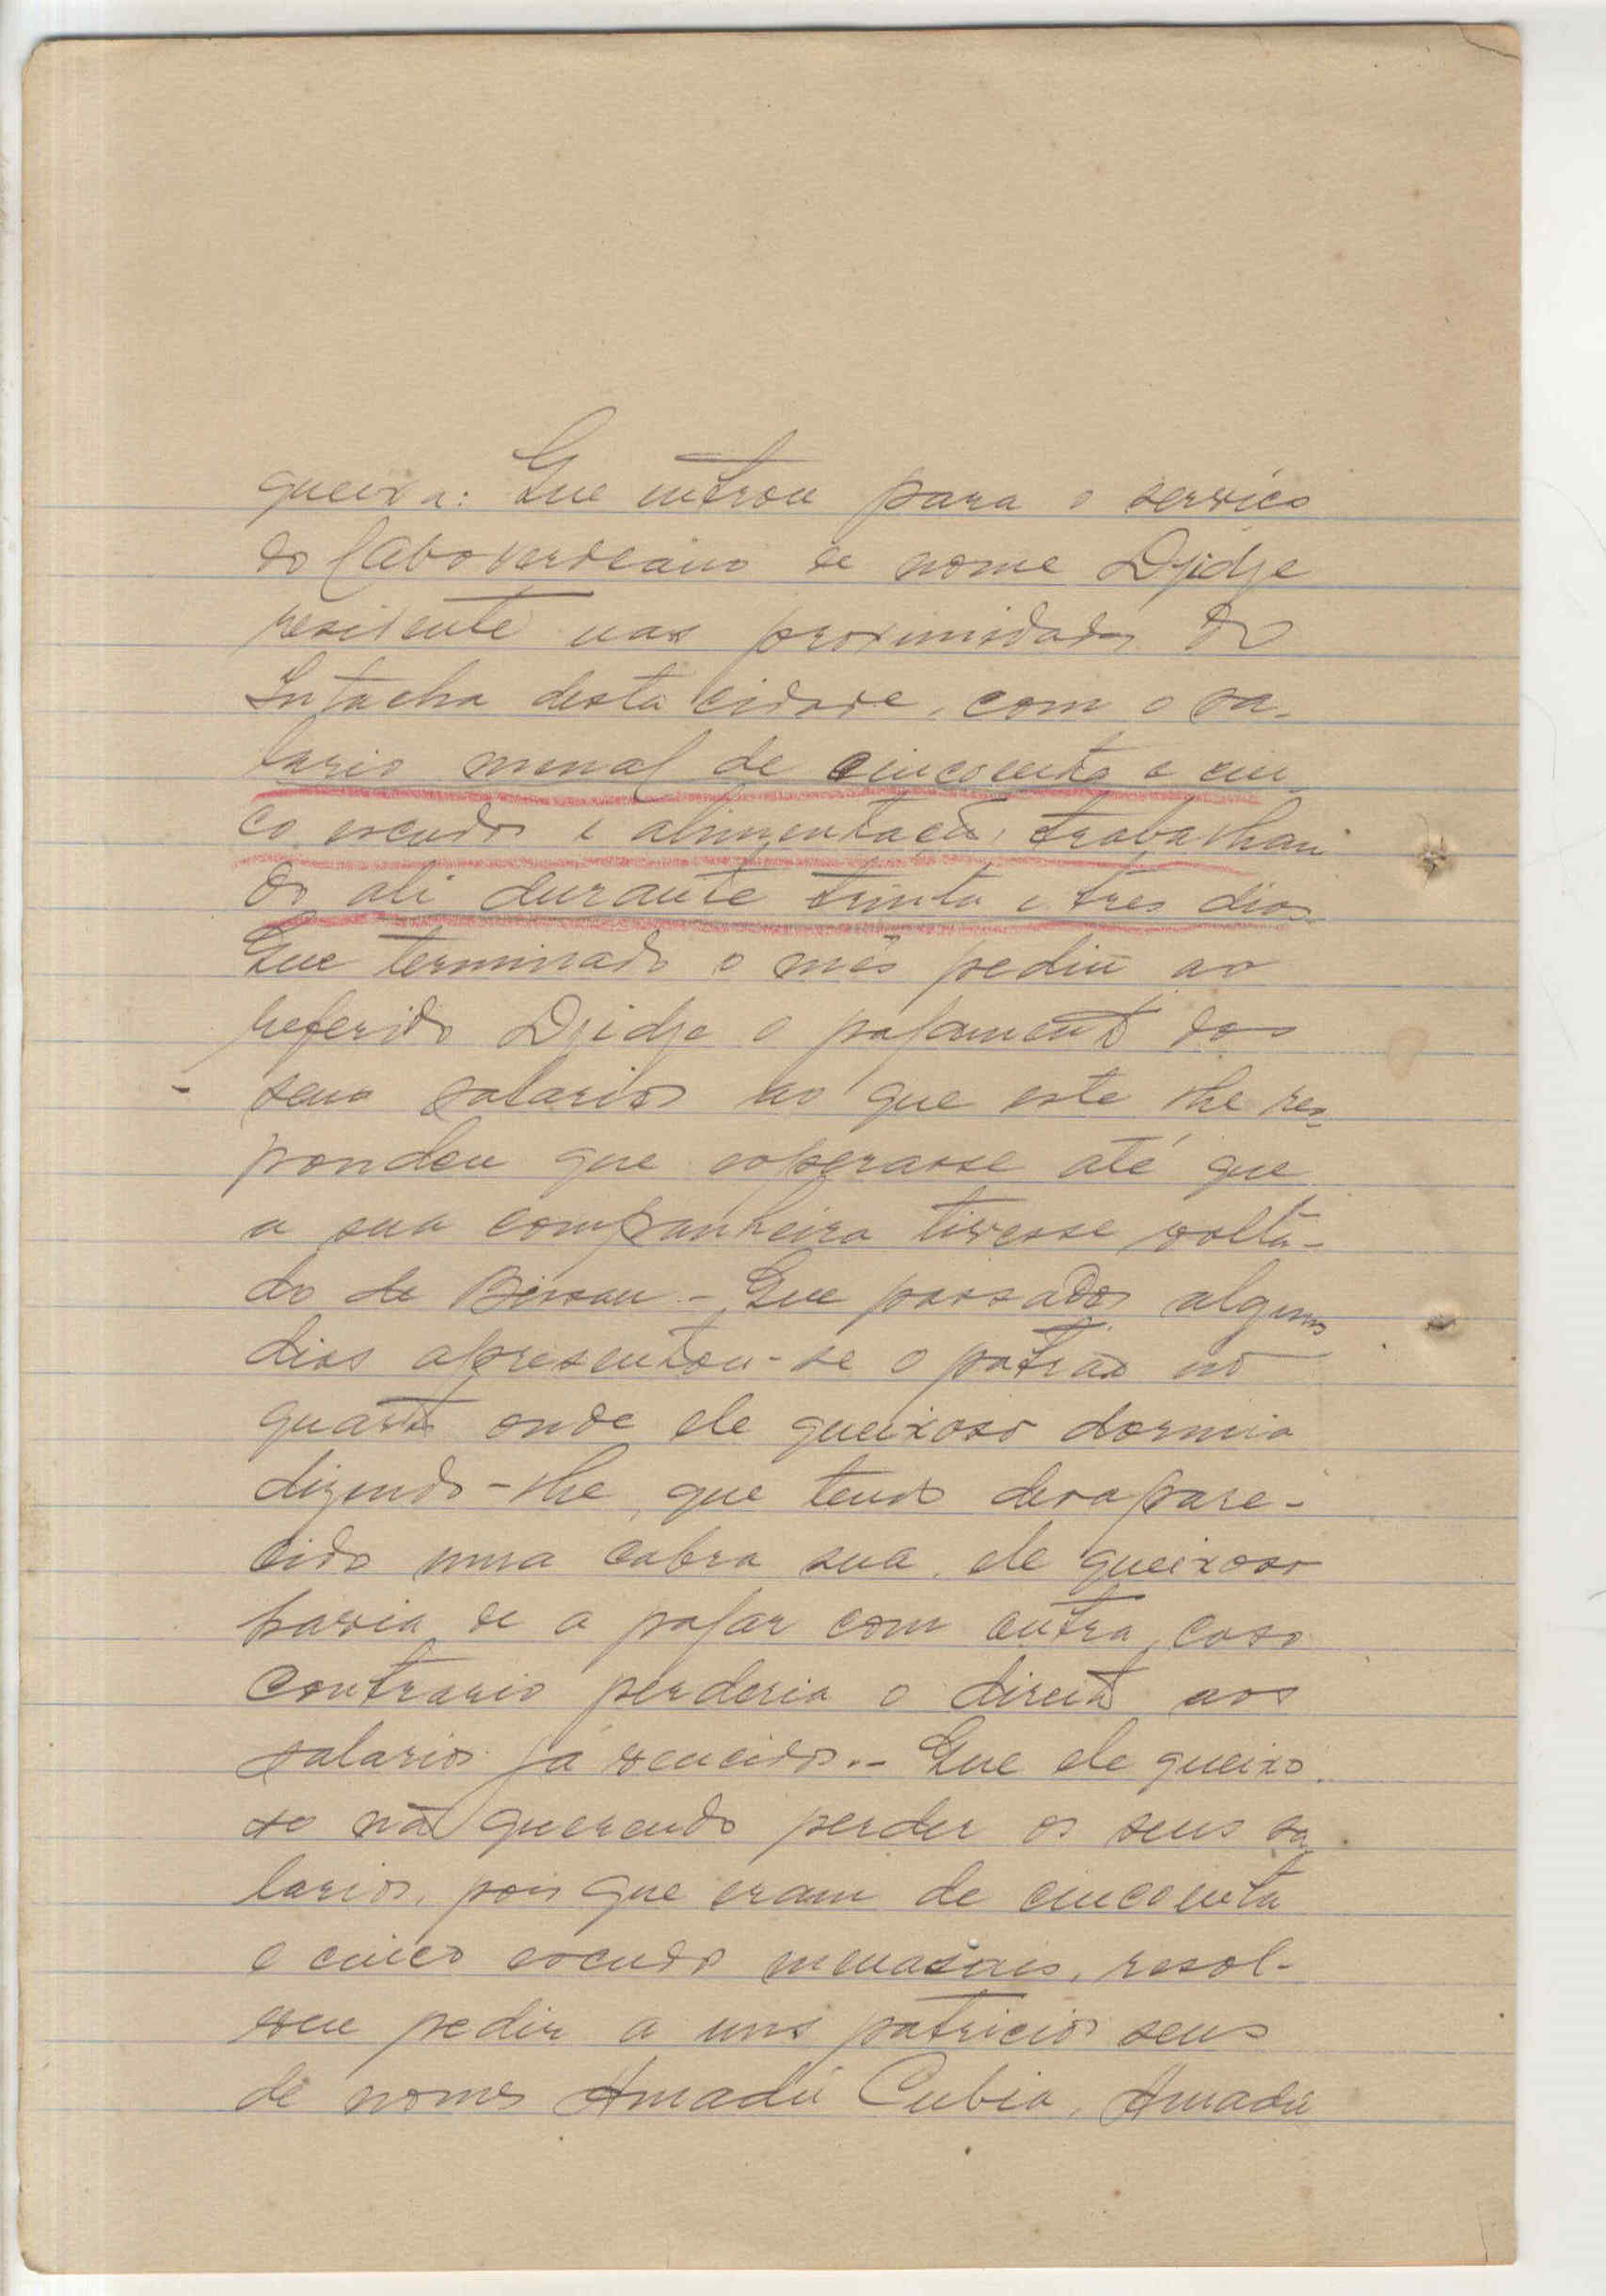 queixa: Que entrou para o serviço
do Caboverdeano de nome Djidje
residente nas proximidades do
Intacha desta cidade, com o sa-
lario mensal de cincoenta e cin-
co escudos e alimentação, trabalhan
do ali durante trinta e tres dias.
Que terminado o mês pediu ao
referido Djidje o pagamento dos
seus salarios ao que este lhe res-
pondeu que esperasse até que
a sua companheira tivesse volta-
do de Bissau - Que passados alguns
dias apresentou-se o patrão no
quarto onde ele queixoso dormia
dizendo-lhe, que tendo desapare-
cido uma cabra sua, ele queixoso
havia de a pagar com outra, caso
contrario perderia o direito aos
salarios já vencidos.- Que ele queixo-
so não querendo perder os seus sa
larios, pois que eram de cincoenta
e cinco escudos mensais, resol-
veu pedir a uns patricios seus
de nomes Amadú Cubia, Amadú